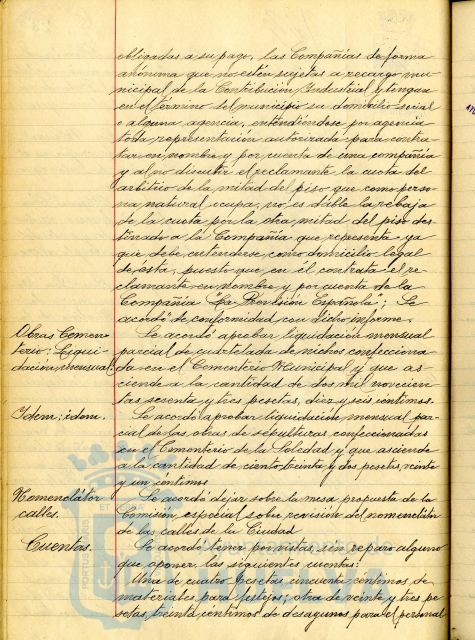 obligadas a su pago, las Compañías de forma
anónima que no estén sujetas a recargo mu-
nicipal de la Contribución Industrial y tengan
en el término del municipio su domicilio social
o alguna agencia, entendiéndose por agencia
toda representación autorizada para contra-
tar en nombre y por cuenta de una compañía
y al no discutir el reclamante la cuota del
arbitrio de la mitad del piso que como perso-
na natural ocupa, no es dable la rebaja
de la cuota por la otra mitad del piso des-
tinado a la Compañía que representa ya
que debe entenderse como domicilio legal
de ésta, puesto que en él contrata el re-
clamante en nombre y por cuenta de la
Compañía "La Previsión Española"; Se
acordó de conformidad con dicho informe.
Obras Cemen-
terio: Liqui-
dación mensual.
Se acordó aprobar liquidación mensual
parcial de cuartelada de nichos confecciona-
da en el Cementerio Municipal y que as-
ciende a la cantidad de dos mil novecien-
tas sesenta y tres pesetas, diez y seis céntimos.
Idem: idem.
Se acordó aprobar liquidación mensual par-
cial de las obras de sepulturas confeccionadas
en el Cementerio de la Soledad y que asciende
a la cantidad de ciento treinta y dos pesetas, veinte
y un céntimos
Nomenclátor
calles.
Se acordó dejar sobre la mesa propuesta de la
Comisión especial sobre revisión del nomenclátor
de las calles de la Ciudad
Cuentas.
Se acordó tener por vistas, sin reparo alguno
que oponer las siguientes cuentas:
Una de cuatro pesetas cincuenta céntimos de
materiales para festejos; otra de veinte y tres pe-
setas, treinta céntimos de desayunos para el personal